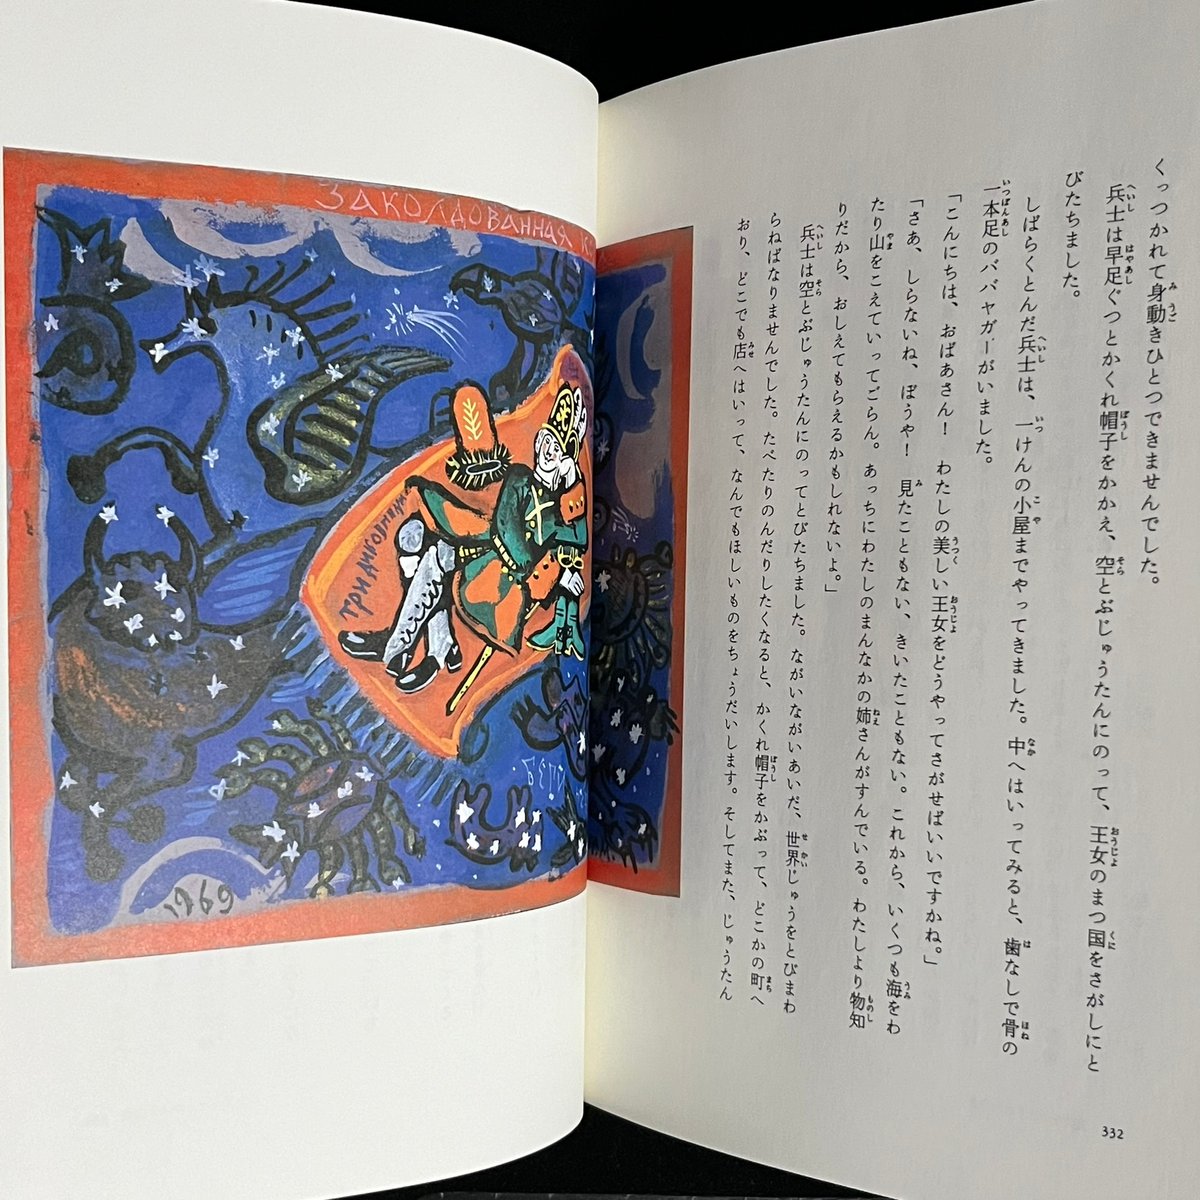 ЗАКОЛДОВАННАЯ К
1969
くっつかれて身動きひとつできませんでした。
兵士は早足ぐつとかくれ帽子をかかえ、空とぶじゅうたんにのって、王女のまつ国をさがしにと
びたちました。
しばらくとんだ兵士は、一けんの小屋までやってきました。中へはいってみると、歯なしで骨の
一本足のババヤガーがいました。
「こんにちは、おばあさん！　わたしの美しい王女をどうやってさがせばいいですかね。」
「さあ、しらないね、ぼうや！　見たこともない、きいたこともない。これから、いくつも海をわ
たり山をこえていってごらん。あっちにわたしのまんなかの姉さんがすんでいる。わたしより物知
りだから、おしえてもらえるかもしれないよ。」
兵士は空とぶじゅうたんにのってとびたちました。ながいながいあいだ、世界じゅうをとびまわ
らねばなりませんでした。たべたりのんだりしたくなると、かくれ帽子をかぶって、どこかの町へ
おり、どこでも店へはいって、なんでもほしいものをちょうだいします。そしてまた、じゅうたん
332